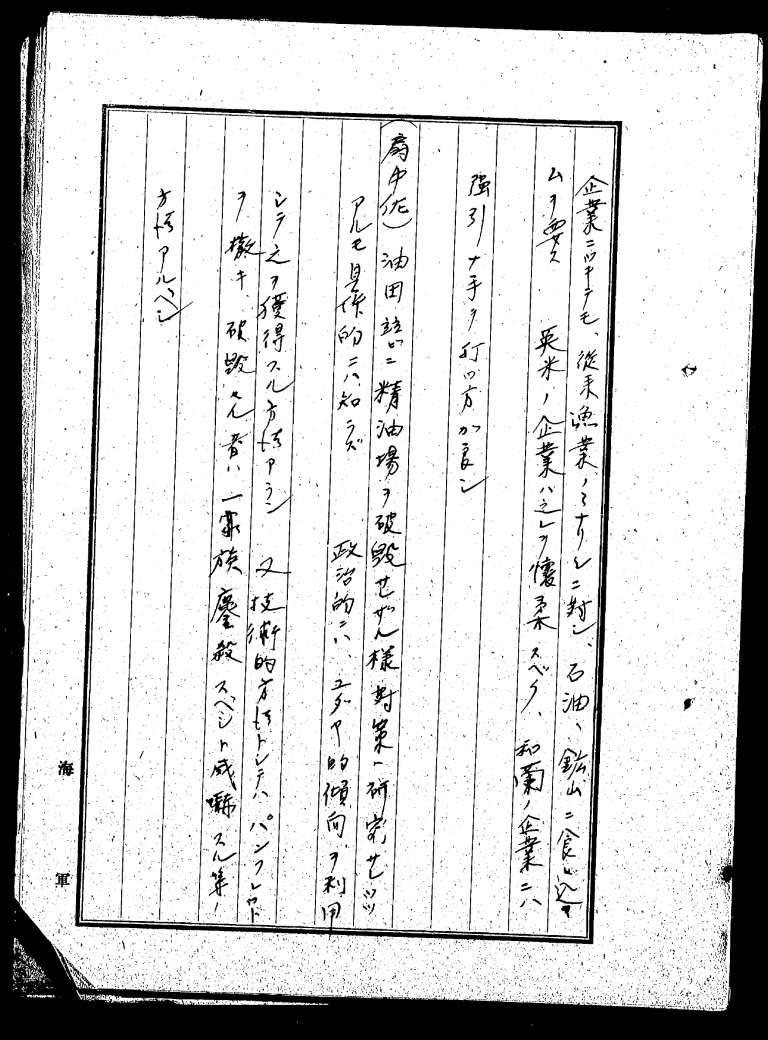 企業ニツキテモ、従来漁業ノミナリシニ対シ、石油、鉱山ニ食ヒ込
ムヲ要ス　英米ノ企業ハ之レヲ懐柔スベク、和蘭ノ企業ニハ
強引ナ手ヲ打ツ方ガ良シ
(　中佐)油田並ビニ精油場ヲ破毀セザル様対策ハ研究サレツツ
アルモ具体的ニハ知ラズ　政治的ニハ、ユダヤ的傾向ヲ利用
シテ之ヲ獲得スル方法アラン　又技術的方法トシテハパンフレット
ヲ撒キ、破毀セル者ハ一家族鏖殺スベシト威嚇スル等ノ
方法アルベシ
海軍